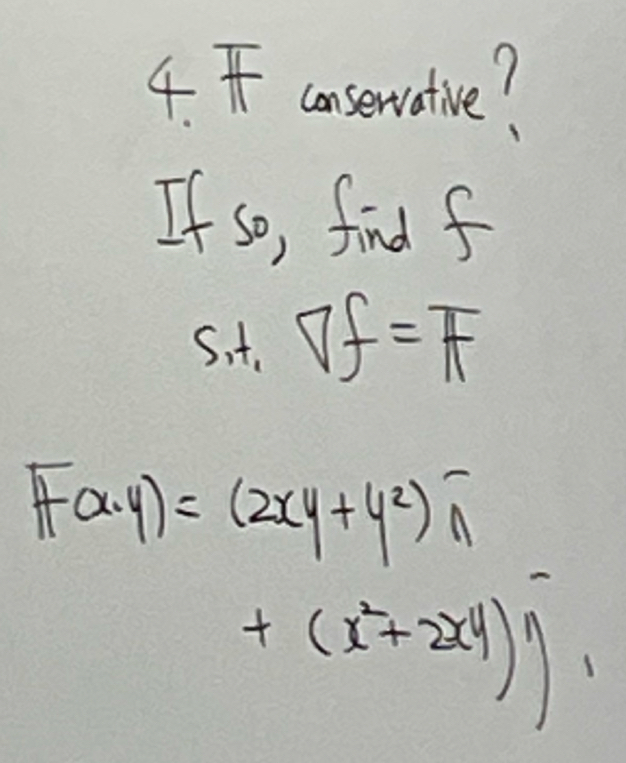 4. 𝔽 conservative?
If so, find f
s.t. ∇f = 𝔽
𝔽(x,y) = (2xy + y²) i
+ (x² + 2xy) j.